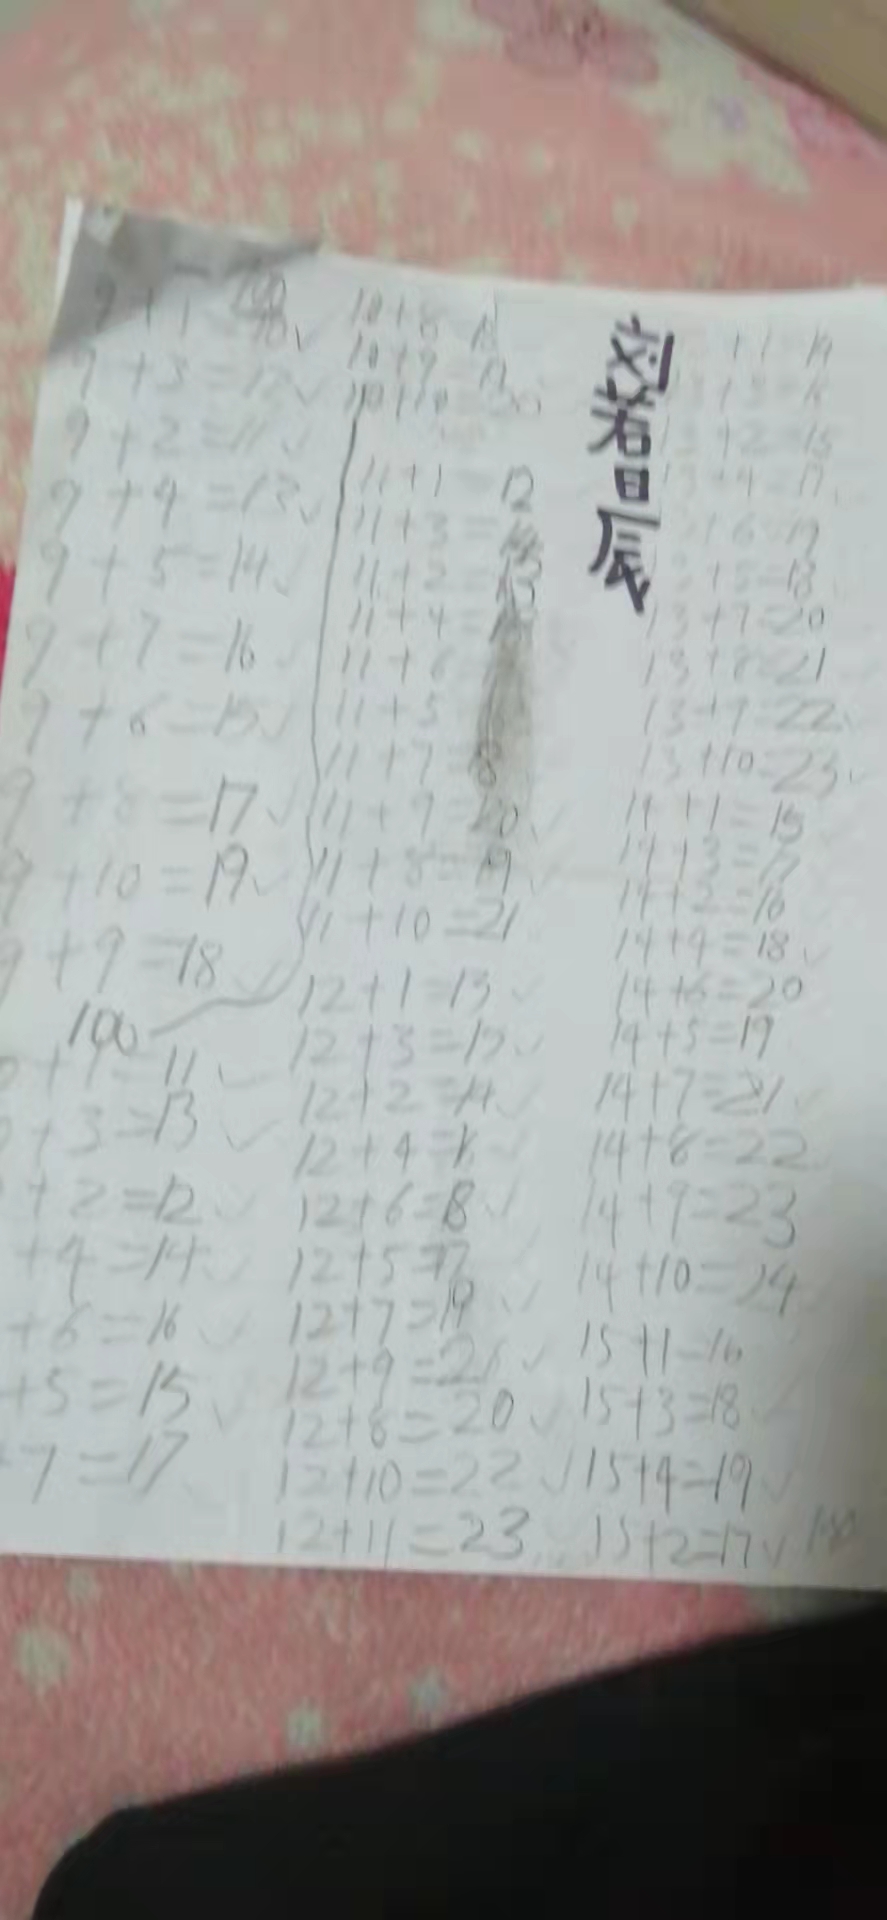 9+1=10
9+3=12
9+2=11
9+4=13
9+5=14
9+7=16
9+6=15
9+8=17
9+10=19
9+9=18
100
+1=11
+3=13
+2=12
+4=14
+6=16
+5=15
+7=17
10+8
10+9
10+10=20
11+1=12
11+3=14
11+2=13
11+4=
11+6
11+5
11+7=18
11+9=20
11+8=19
11+10=21
12+1=13
12+3=15
12+2=14
12+4=
12+6=18
12+5=17
12+7=19
12+9=21
12+8=20
12+10=22
12+11=23
刘若辰
+1=14
+2=15
+4=17
+6=19
+5=18
13+7=20
13+8=21
13+9=22
13+10=23
14+1=15
14+3=17
14+2=16
14+4=18
14+6=20
14+5=19
14+7=21
14+8=22
14+9=23
14+10=24
15+1=16
15+3=18
15+4=19
15+2=17
100